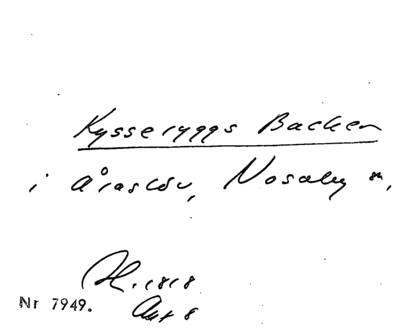 Kysseryggs Backen
i Åraslöv, Nosaby sn,
H. 1818
Nr 7949. Akt 8